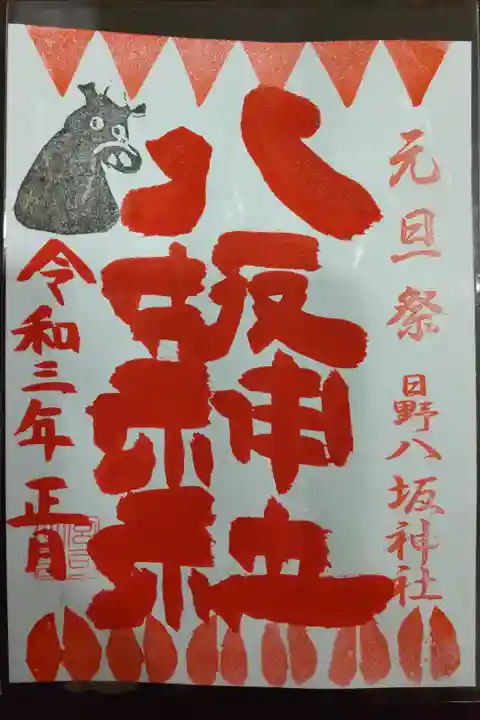 元旦祭 日野八坂神社
八坂神社
令和三年 正月